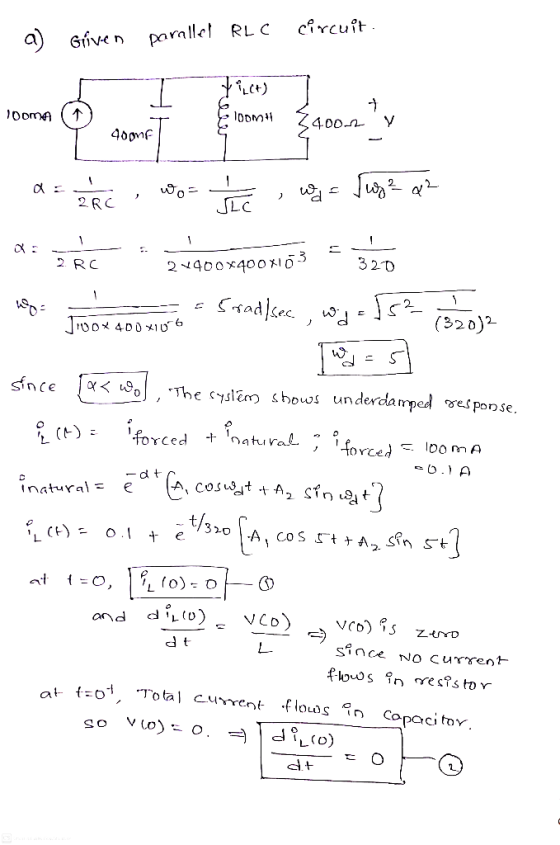 a) Given parallel RLC circuit.
iL(t)
100mA
400mF
100mH
400Ω
+
V
-
α = 1/2RC , ω0 = 1/√LC , ωd = √ω0² α²
α = 1/2RC = 1/2×400×400×10^-3 = 1/320
ω0 = 1/√100×400×10^-6 = 5rad/sec , ωd = √5² 1/(320)²
ωd = 5
since α < ω0 , The system shows underdamped response.
iL(t) = iforced + inatural ; iforced = 100mA
= 0.1A
inatural = e^-αt {A1 cosωdt + A2 sinωdt}
iL(t) = 0.1 + e^-t/320 [A1 cos 5t + A2 sin 5t]
at t=0, iL(0) = 0 - ①
and diL(0)/dt = V(0)/L ⇒ V(0) is zero
since No current
flows in resistor
at t=0+, Total current flows in capacitor.
so V(0) = 0. ⇒ diL(0)/dt = 0 - ②